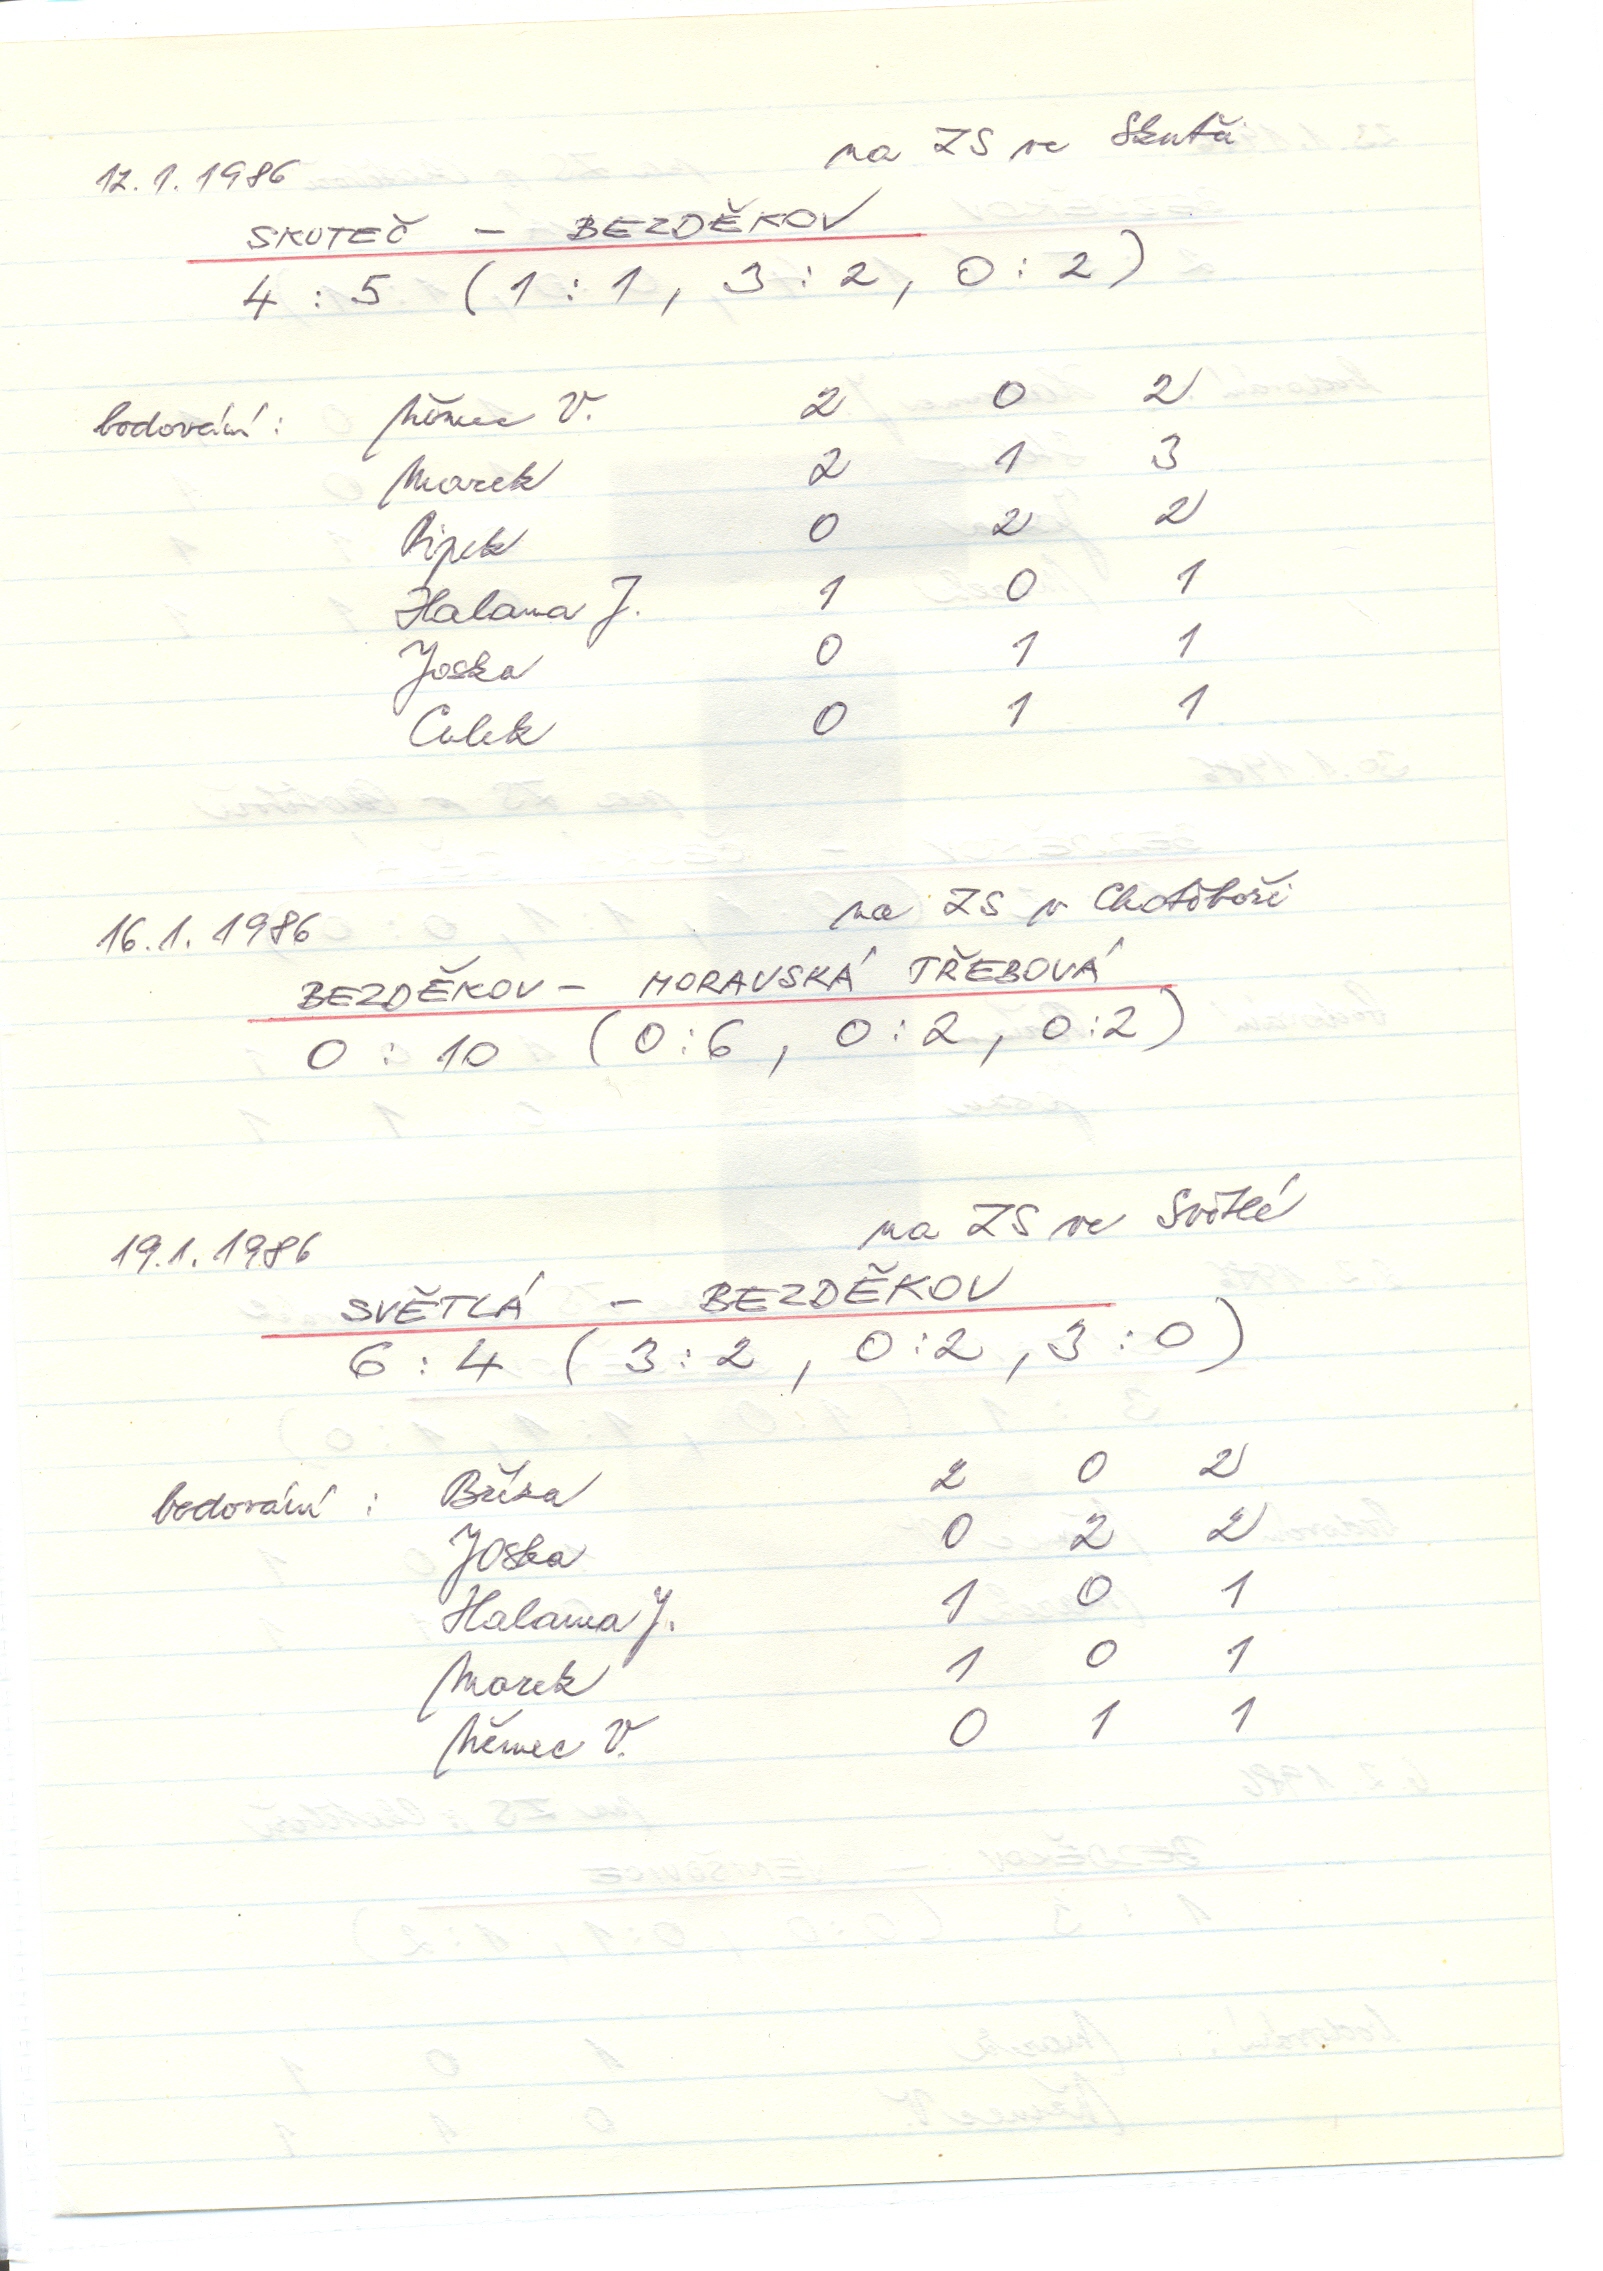 12.1.1986 na ZS ve Skutči
SKUTEČ - BEZDĚKOV
4 : 5 (1 : 1, 3 : 2, 0 : 2)
bodování: Němec V. 2 0 2
Marek 2 1 3
Pipek 0 2 2
Halama J. 1 0 1
Joska 0 1 1
Culek 0 1 1
16.1.1986 na ZS v Chotěboři
BEZDĚKOV - MORAVSKÁ TŘEBOVÁ
0 : 10 (0:6, 0:2, 0:2)
19.1.1986 na ZS ve Světlé
SVĚTLÁ - BEZDĚKOV
6 : 4 (3 : 2, 0:2, 3 : 0)
bodování : Bříza 2 0 2
Joska 0 2 2
Halama J. 1 0 1
Marek 1 0 1
Němec V. 0 1 1